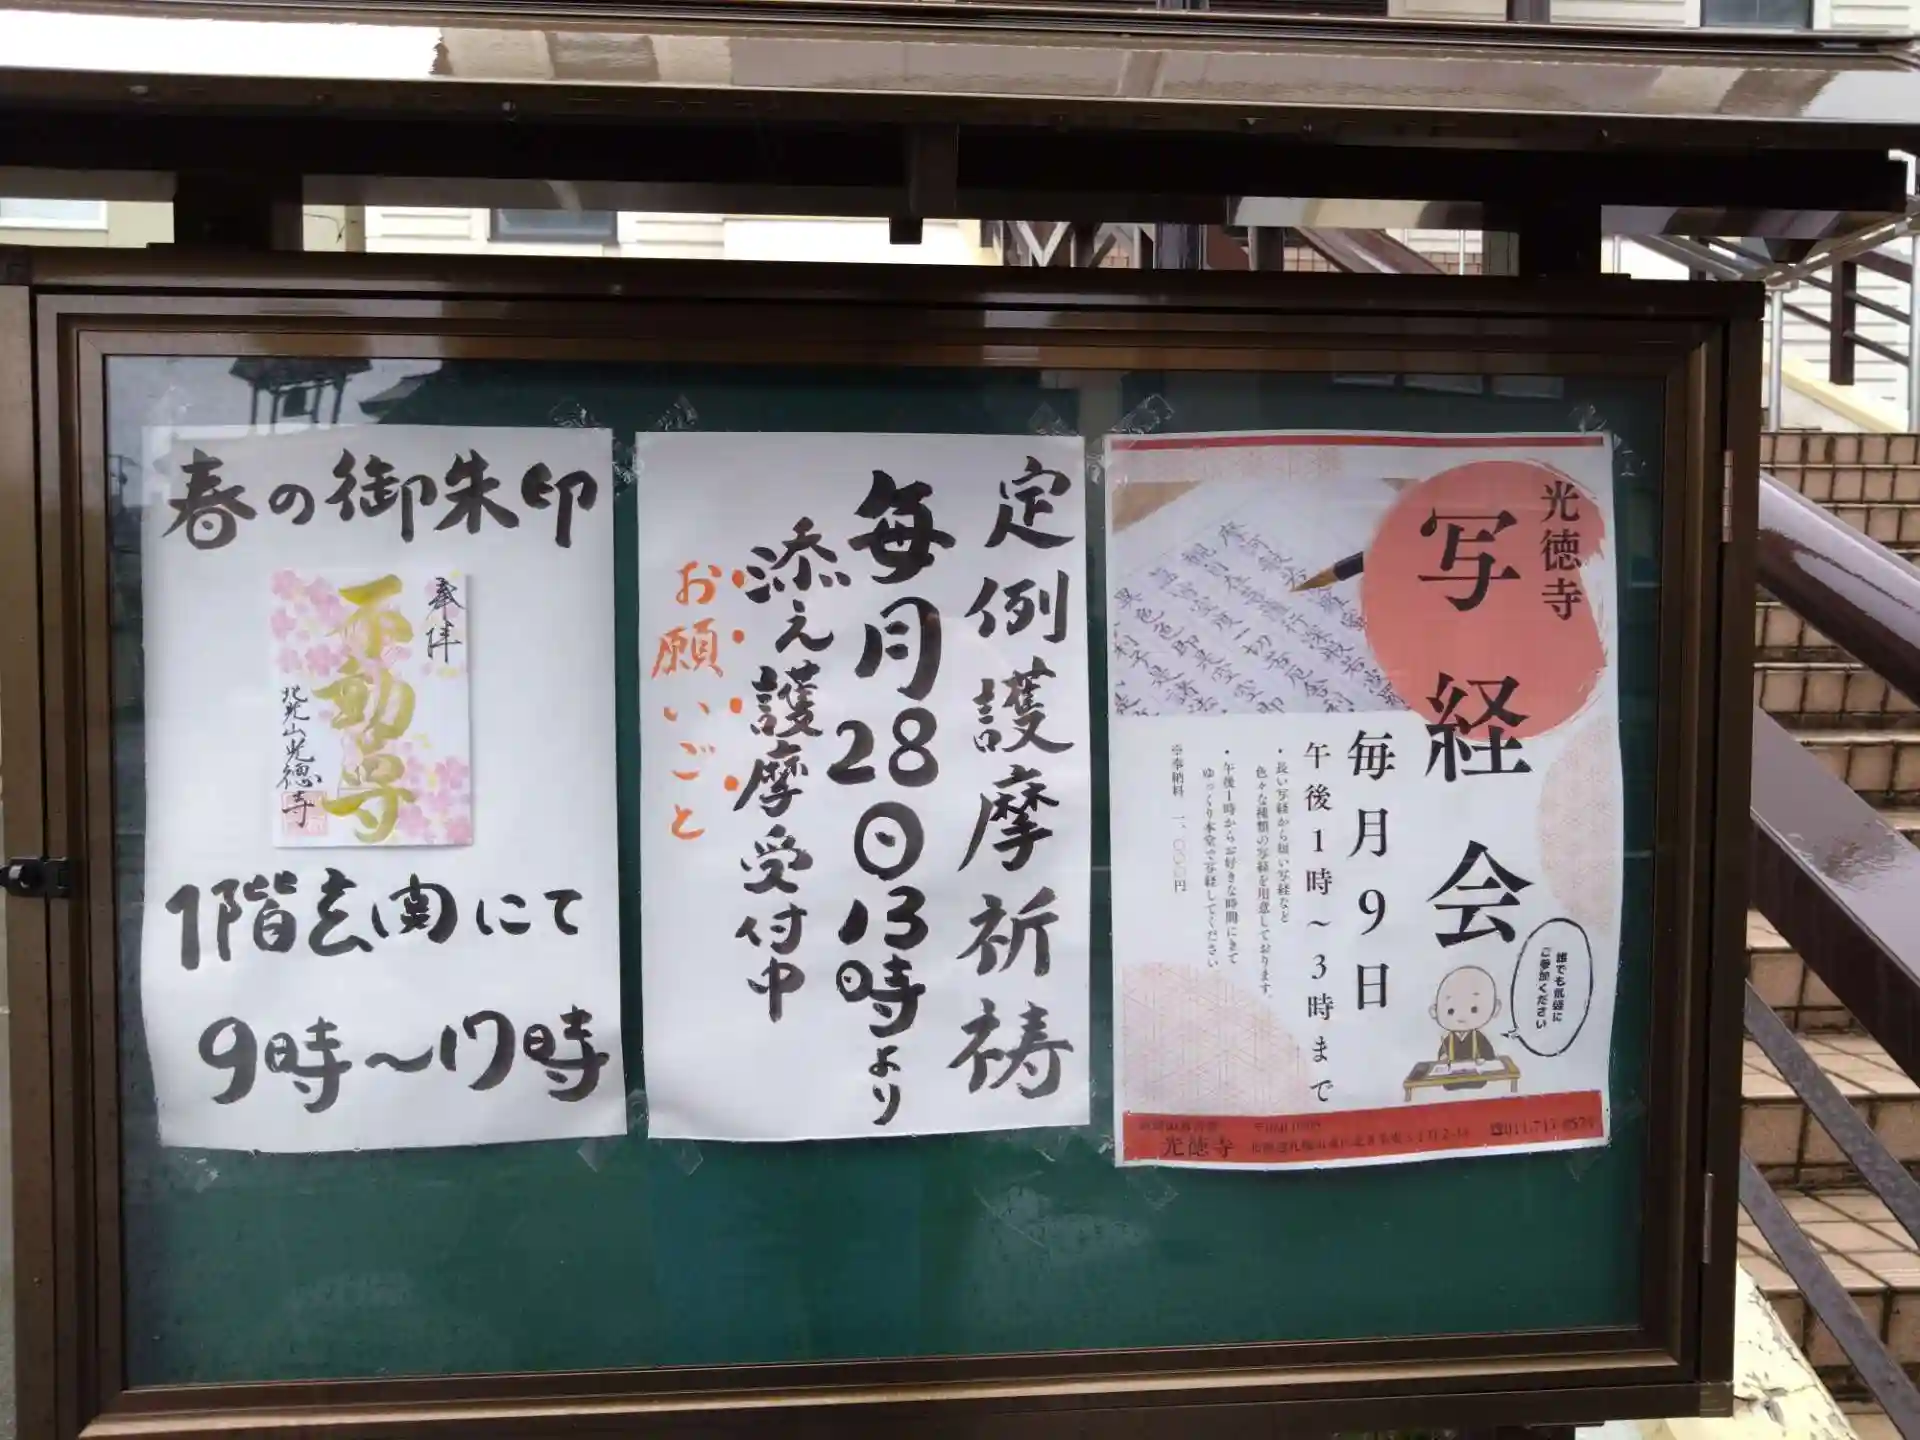 春の御朱印
奉拝
不動尊
北光山光徳寺
1階玄関にて
9時〜17時
定例護摩祈祷
毎月28日13時より
添え護摩受付中
お願いごと
光徳寺
写経会
毎月9日
午後1時~3時まで
・長い写経から短い写経など
色々な種類の写経を用意しております。
・午後1時からお好きな時間にきて
ゆっくり本堂で写経してください
※奉納料 一、〇〇〇円
誰でも気軽に
ご参加ください
光徳寺